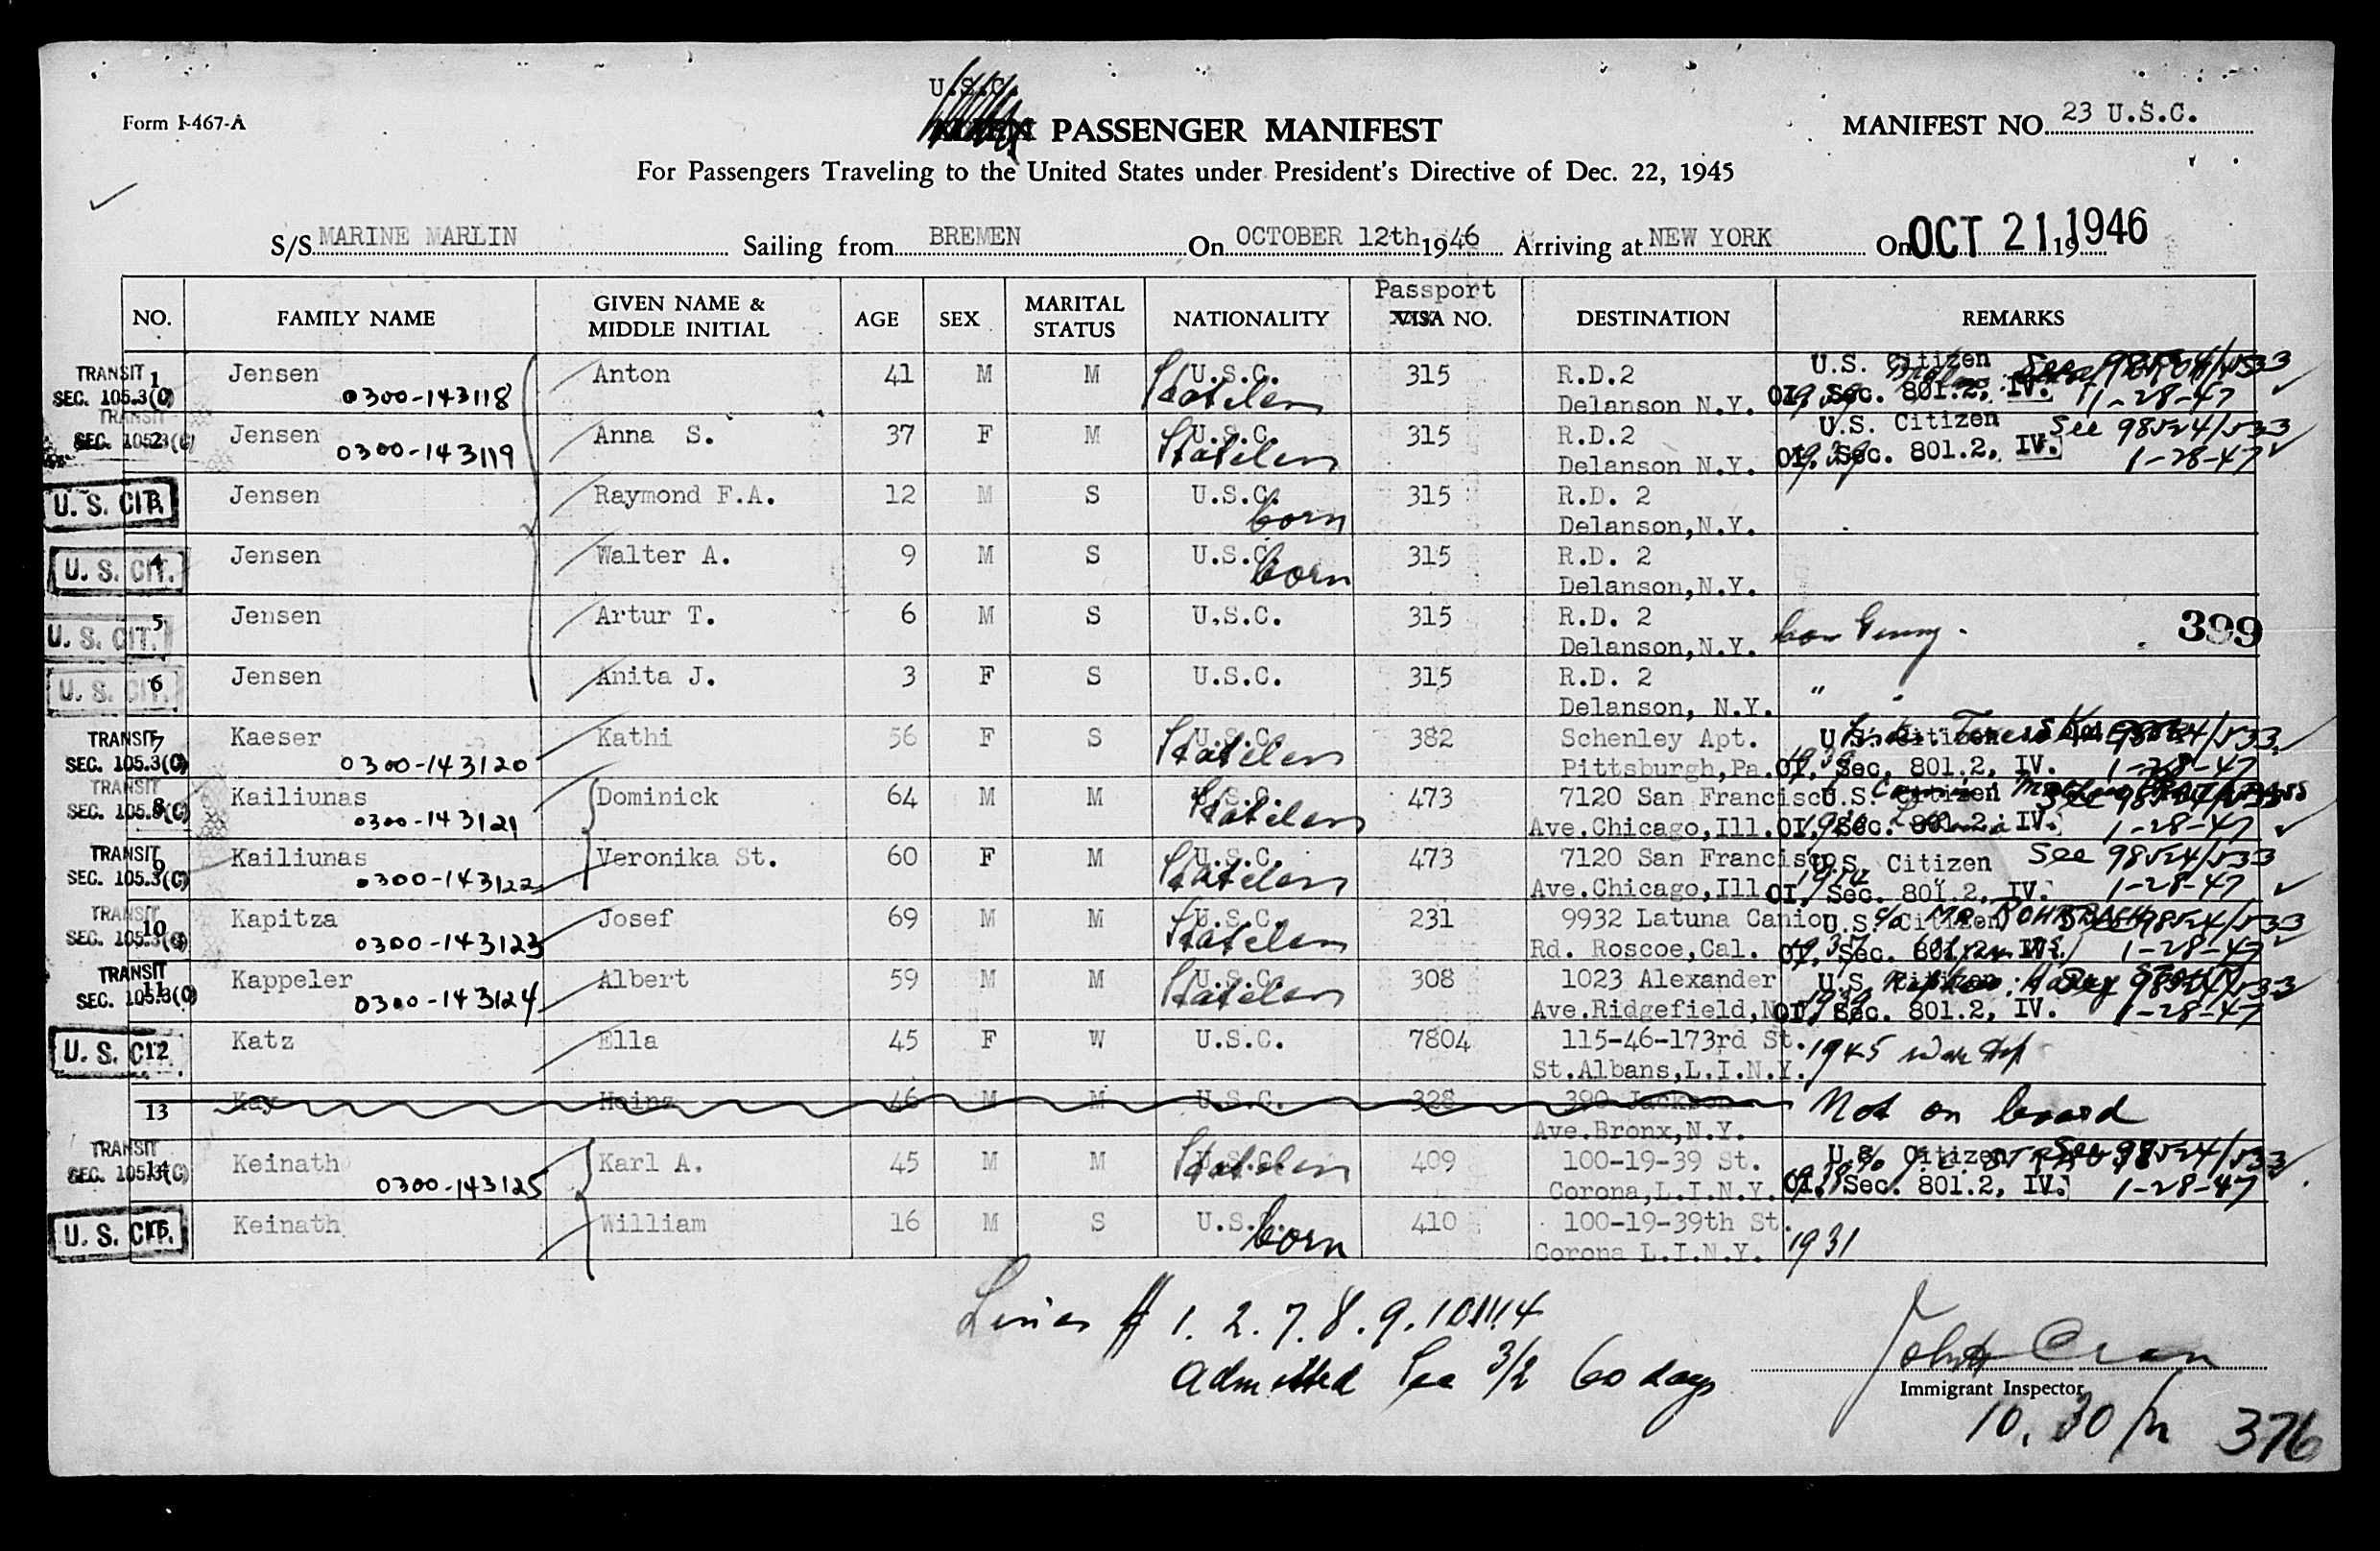 U.S.C.
Form I-467-A
PASSENGER MANIFEST
MANIFEST NO. 23 U.S.C.
For Passengers Traveling to the United States under President's Directive of Dec. 22, 1945
S/S MARINE MARLIN Sailing from BREMEN On OCTOBER 12th 1946 Arriving at NEW YORK On OCT 21 1946 19
NO. FAMILY NAME GIVEN NAME & MIDDLE INITIAL AGE SEX MARITAL STATUS NATIONALITY Passport VISA NO. DESTINATION REMARKS
TRANSIT 1 Jensen Anton 41 M M U.S.C. 315 R.D.2 U.S. Citizen See 98524/533
SEC. 105.3(C) 0300-143118 Stateless Delanson N.Y. OI. Sec. 801.2, IV. 1-28-47
TRANSIT 2 Jensen Anna S. 37 F M U.S.C. 315 R.D.2 U.S. Citizen See 98524/533
SEC. 105.3(C) 0300-143119 Stateless Delanson N.Y. OI. Sec. 801.2, IV. 1-28-47
U.S. CIT. 3 Jensen Raymond F.A. 12 M S U.S.C. 315 R.D. 2
born Delanson,N.Y.
U.S. CIT. 4 Jensen Walter A. 9 M S U.S.C. 315 R.D. 2
born Delanson,N.Y.
U.S. CIT. 5 Jensen Artur T. 6 M S U.S.C. 315 R.D. 2 399
Delanson,N.Y.
U.S. CIT. 6 Jensen Anita J. 3 F S U.S.C. 315 R.D. 2 "
Delanson, N.Y.
TRANSIT 7 Kaeser Kathi 56 F S U.S.C. 382 Schenley Apt. U.S. Citizen 98524/533
SEC. 105.3(C) 0300-143120 Stateless Pittsburgh,Pa. OI. Sec. 801.2, IV. 1-28-47
TRANSIT 8 Kailiunas Dominick 64 M M U.S.C. 473 7120 San Francisco U.S. Citizen See 98524/533
SEC. 105.3(C) 0300-143121 Stateless Ave.Chicago,Ill. OI. Sec. 801.2, IV. 1-28-47
TRANSIT 9 Kailiunas Veronika St. 60 F M U.S.C. 473 7120 San Francisco U.S. Citizen See 98524/533
SEC. 105.3(C) 0300-143122 Stateless Ave.Chicago,Ill. OI. Sec. 801.2, IV. 1-28-47
TRANSIT 10 Kapitza Josef 69 M M U.S.C. 231 9932 Latuna Canion U.S. Citizen 98524/533
SEC. 105.3(C) 0300-143123 Stateless Rd. Roscoe,Cal. OI. Sec. 801.2, IV. 1-28-47
TRANSIT 11 Kappeler Albert 59 M M U.S.C. 308 1023 Alexander U.S. Citizen See 98524/533
SEC. 105.3(C) 0300-143124 Stateless Ave.Ridgefield,N.J. OI. Sec. 801.2, IV. 1-28-47
U.S. CIT. 12 Katz Ella 45 F W U.S.C. 7804 115-46-173rd St. 1945
St.Albans,L.I.N.Y.
13 Kay Heinz 46 M M U.S.C. 328 390 Jackson Not on board
Ave.Bronx,N.Y.
TRANSIT 14 Keinath Karl A. 45 M M U.S.C. 409 100-19-39 St. U.S. Citizen See 98524/533
SEC. 105.3(C) 0300-143125 Stateless Corona,L.I.N.Y. OI. Sec. 801.2, IV. 1-28-47
U.S. CIT. 15 Keinath William 16 M S U.S.C. 410 100-19-39th St. 1931
born Corona L.I.N.Y.
Lines # 1. 2. 7. 8. 9. 10 11 14
admitted Sec 3/2 60 days
Immigrant Inspector
10.30
376